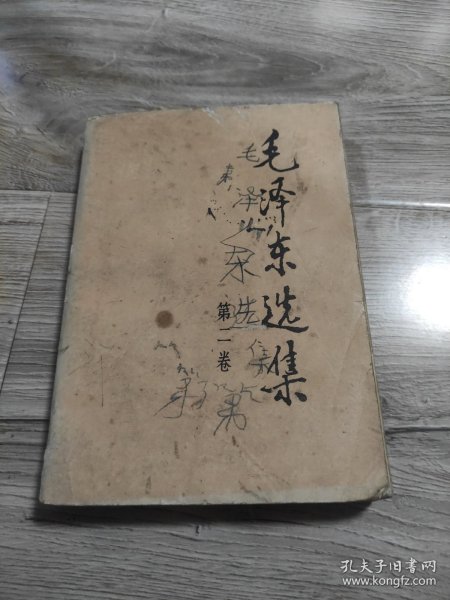 毛泽东选集
第二卷
毛泽东选集
孔夫子旧书网
www.kongfz.com